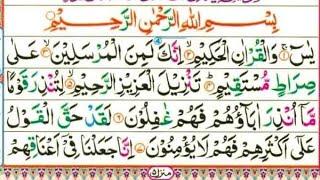 بِسْمِ اللّٰهِ الرَّحْمٰنِ الرَّحِيْمِ
يٰسٓ ۚ﴿۱﴾ وَالْقُرْاٰنِ الْحَكِيْمِ ۙ﴿۲﴾ اِنَّكَ لَمِنَ الْمُرْسَلِيْنَ ۙ﴿۳﴾ عَلٰى
صِرَاطٍ مُّسْتَقِيْمٍ ؕ﴿۴﴾ تَنْزِيْلَ الْعَزِيْزِ الرَّحِيْمِ ۙ﴿۵﴾ لِتُنْذِرَ قَوْمًا
مَّاۤ اُنْذِرَ اٰبَآؤُهُمْ فَهُمْ غٰفِلُوْنَ ﴿۶﴾ لَقَدْ حَقَّ الْقَوْلُ
عَلٰٓى اَكْثَرِهِمْ فَهُمْ لَا يُؤْمِنُوْنَ ﴿۷﴾ اِنَّا جَعَلْنَا فِيْۤ اَعْنَاقِهِمْ
منزل ۵